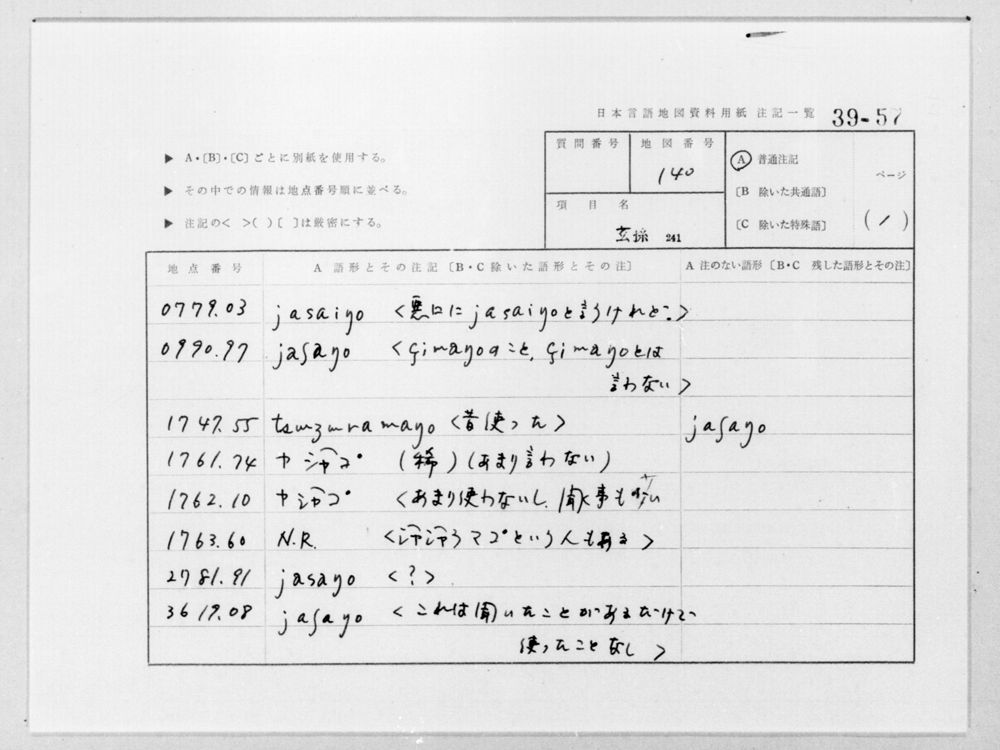 日本言語地図資料用紙 注記一覧 39-57
▶ A・〔B〕・〔C〕ごとに別紙を使用する。
▶ その中での情報は地点番号順に並べる。
▶ 注記の< >( )[ ]は厳密にする。
質問番号 地図番号 140
項目名 玄孫 241
Ⓐ 普通注記
〔B 除いた共通語〕
〔C 除いた特殊語〕
ページ (1)
地点番号 A 語形とその注記〔B・C 除いた語形とその注〕 A 注のない語形〔B・C 残した語形とその注〕
0779.03 jasaiŋo <悪口にjasaiŋoと言うけれど:>
0990.97 jaʃaŋo <çimaŋoのこと, çimaŋoとは
言わない>
1747.55 tsuzuramaŋo <昔使った> jaʃaŋo
1761.74 ヤシャコ゚ (稀)(あまり言わない)
1762.10 ヤシャコ゚ <あまり使わないし、聞く事も少い
1763.60 N.R. <シャシャラマコ゚という人もある>
2781.91 jasaŋo <?>
3619.08 jaʃaŋo <これは聞いたことがあるだけで
使ったことなし>